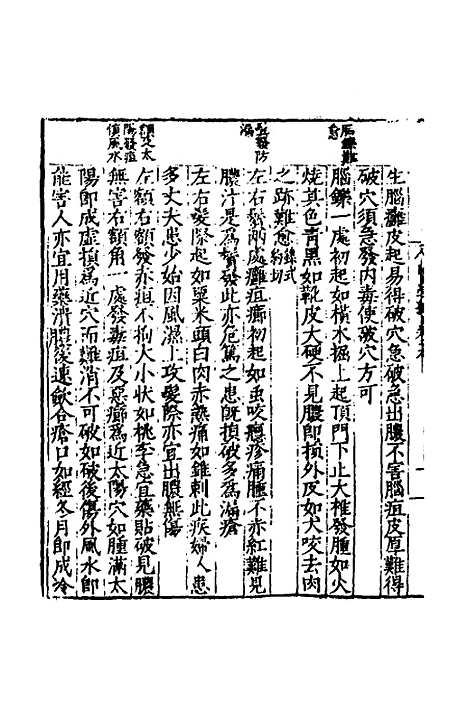 腦鑠難愈
鬢發防漏
額近太陽發疽慎風水
生腦癰皮起易得破穴急破急出膿不害腦疽皮厚難得
破穴須急發內毒使破穴方可
腦鑠一處初起如橫木掘上起頂門下止大椎發腫如火
燒其色青黑如靴皮大硬不見膿即損外皮如犬咬去肉
之跡難愈鑠式約切
左右鬢兩處癰疽癤初起如虫咬癮疹痛腫不亦紅難見
膿汁是為鬢發此亦危篤之患既損破多為漏瘡
左右髮際起如粟米頭白肉赤熱痛如錐刺此疾婦人患
多丈夫患少始因風濕上攻髮際亦宜出膿無傷
左額右額發亦疽不拘大小狀如桃李急宜藥貼破見膿
無害右額角一處發毒疽及惡癤為近太陽穴如腫滿太
陽即成虛損為近穴而難消不可破如破後傷外風水即
能害人亦宜用藥潰膿後速飲合瘡口如經冬月即成冷